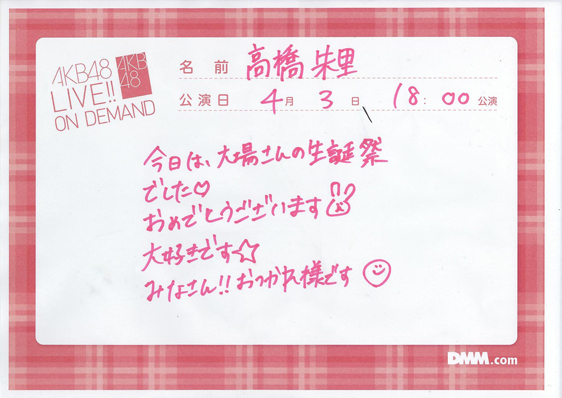 AKB48
LIVE!!
ON DEMAND
AKB
48
名 前 高橋朱里
公演日 4月 3日 18:00 公演
今日は、大場さんの生誕祭
でした♡
おめでとうございます
大好きです☆
みなさん!!おつかれ様です
DMM.com